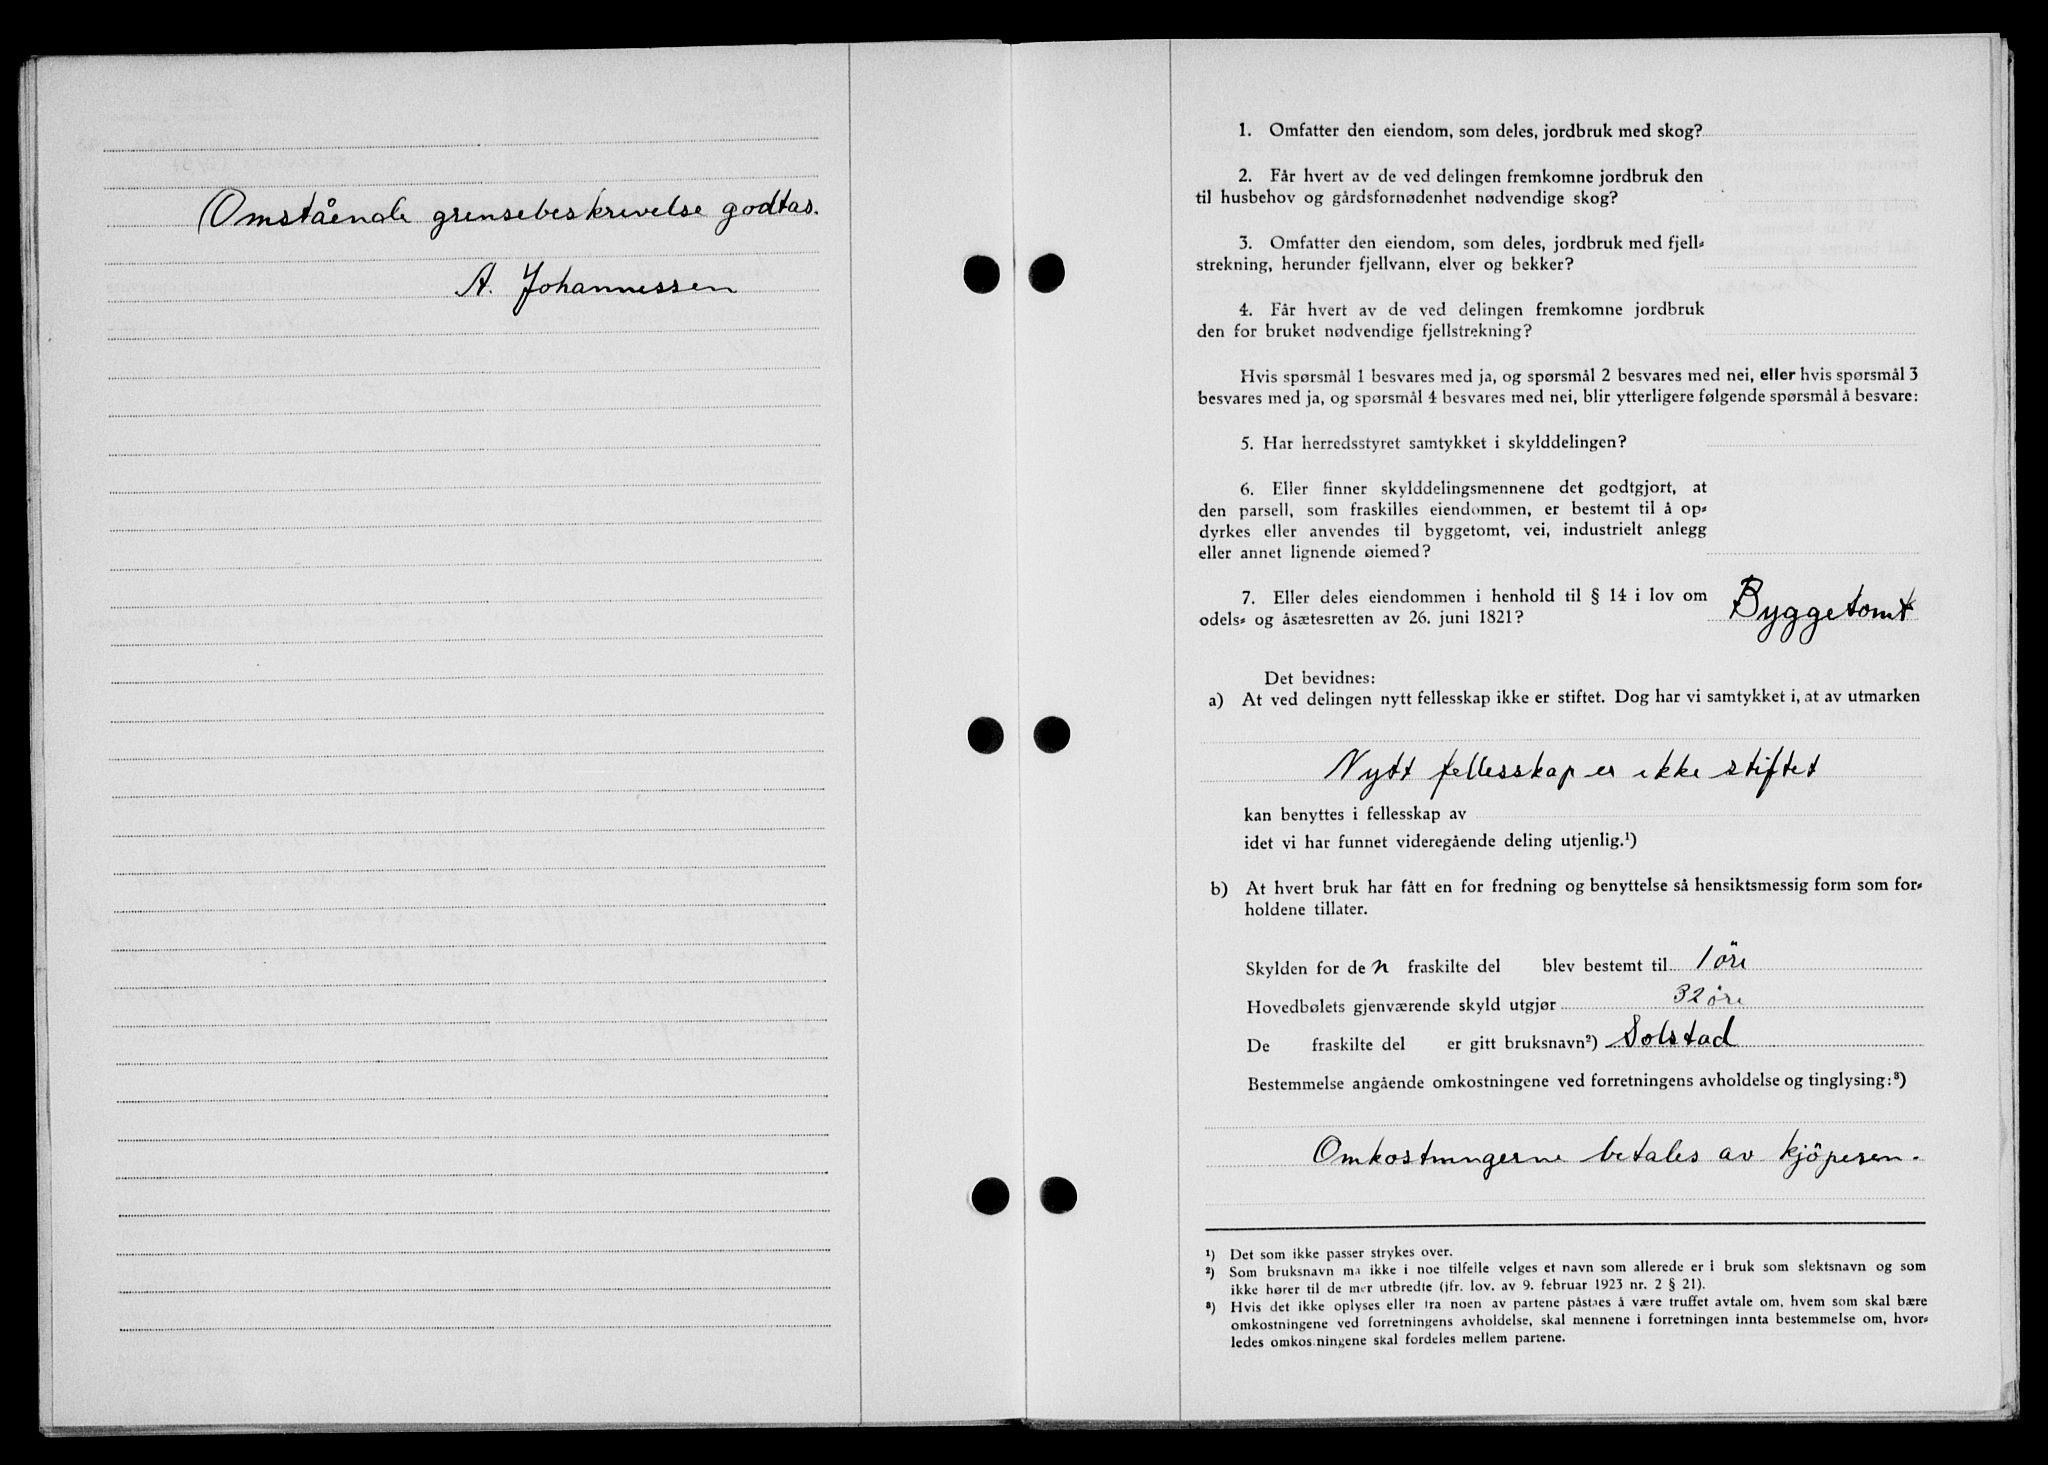 Omstående grensebeskrivelse godtas.
A. Johannessen
1. Omfatter den eiendom, som deles, jordbruk med skog?
2. Får hvert av de ved delingen fremkomne jordbruk den
til husbehov og gårdsfornødenhet nødvendige skog?
3. Omfatter den eiendom, som deles, jordbruk med fjell=
strekning, herunder fjellvann, elver og bekker?
4. Får hvert av de ved delingen fremkomne jordbruk
den for bruket nødvendige fjellstrekning?
Hvis spørsmål 1 besvares med ja, og spørsmål 2 besvares med nei, eller hvis spørsmål 3
besvares med ja, og spørsmål 4 besvares med nei, blir ytterligere følgende spørsmål å besvare:
5. Har herredsstyret samtykket i skylddelingen?
6. Eller finner skylddelingsmennene det godtgjort, at
den parsell, som fraskilles eiendommen, er bestemt til å op=
dyrkes eller anvendes til byggetomt, vei, industrielt anlegg
eller annet lignende øiemed?
7. Eller deles eiendommen i henhold til § 14 i lov om
odels= og åsætesretten av 26. juni 1821? Byggetomt
Det bevidnes:
a) At ved delingen nytt fellesskap ikke er stiftet. Dog har vi samtykket i, at av utmarken
Nytt fellesskap er ikke stiftet
kan benyttes i fellesskap av
idet vi har funnet videregående deling utjenlig.¹)
b) At hvert bruk har fått en for fredning og benyttelse så hensiktsmessig form som for=
holdene tillater.
Skylden for de n fraskilte del blev bestemt til 1 öre
Hovedbølets gjenværende skyld utgjør 32 öre
De fraskilte del er gitt bruksnavn²) Solstad
Bestemmelse angående omkostningene ved forretningens avholdelse og tinglysing:³)
Omkostningerne betales av kjöperen.
¹) Det som ikke passer strykes over.
²) Som bruksnavn ma ikke i noe tilfelle velges et navn som allerede er i bruk som slektsnavn og som
ikke hører til de mer utbredte (jfr. lov. av 9. februar 1923 nr. 2 § 21).
³) Hvis det ikke oplyses eller fra noen av partene påstaes å være truffet avtale om, hvem som skal bære
omkostningene ved forretningens avholdelse, skal mennene i forretningen innta bestemmelse om, hvor=
ledes omkostningene skal fordeles mellem partene.